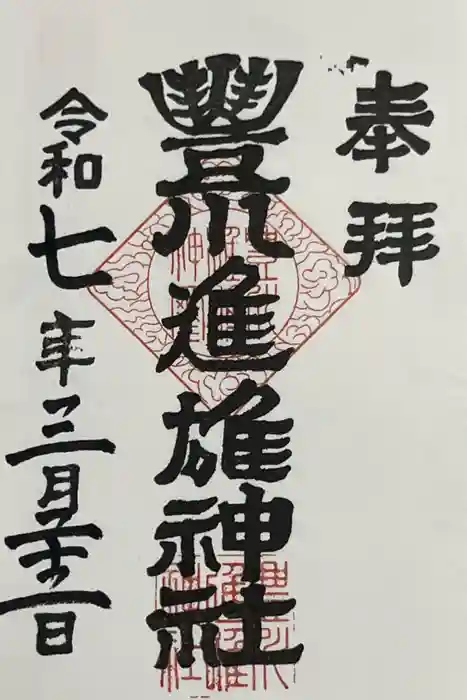 奉拝
豐川進雄神社
令和七年三月二十二日